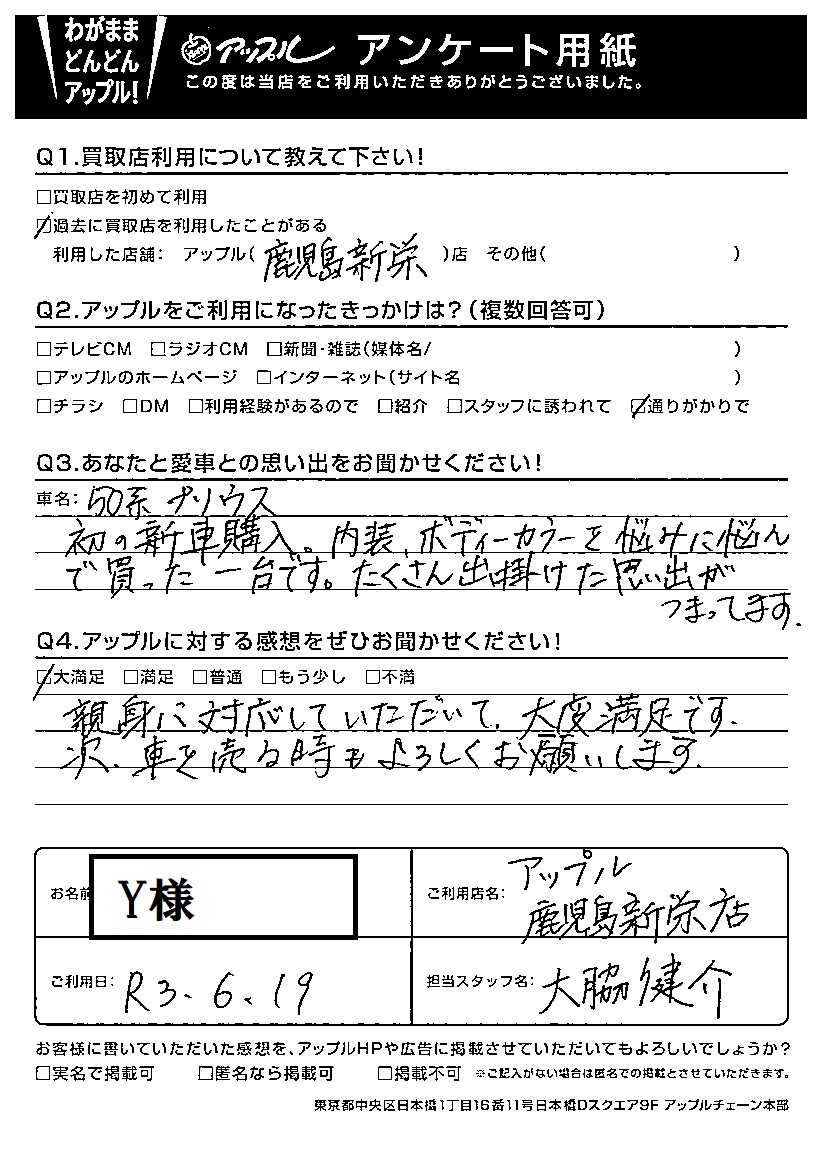 わがまま
どんどん
アップル!
アップル アンケート用紙
この度は当店をご利用いただきありがとうございました。
Q1.買取店利用について教えて下さい!
□買取店を初めて利用
☑過去に買取店を利用したことがある
利用した店舗: アップル(鹿児島新栄)店 その他( )
Q2.アップルをご利用になったきっかけは?(複数回答可)
□テレビCM □ラジオCM □新聞・雑誌(媒体名/ )
□アップルのホームページ □インターネット(サイト名 )
□チラシ □DM □利用経験があるので □紹介 □スタッフに誘われて ☑通りがかりで
Q3.あなたと愛車との思い出をお聞かせください!
車名: 50系 プリウス
初の新車購入。内装、ボディーカラーを悩みに悩ん
で買った一台です。たくさん出掛けた思い出が
つまってます.
Q4.アップルに対する感想をぜひお聞かせください!
☑大満足 □満足 □普通 □もう少し □不満
親身に対応していただいて、大変満足です.
次、車を売る時もよろしくお願いします.
お名前 Y様
ご利用店名: アップル
鹿児島新栄店
ご利用日: R3.6.19
担当スタッフ名: 大脇健介
お客様に書いていただいた感想を、アップルHPや広告に掲載させていただいてもよろしいでしょうか?
□実名で掲載可 □匿名なら掲載可 □掲載不可 ※ご記入がない場合は匿名での掲載とさせていただきます。
東京都中央区日本橋1丁目16番11号日本橋Dスクエア9F アップルチェーン本部